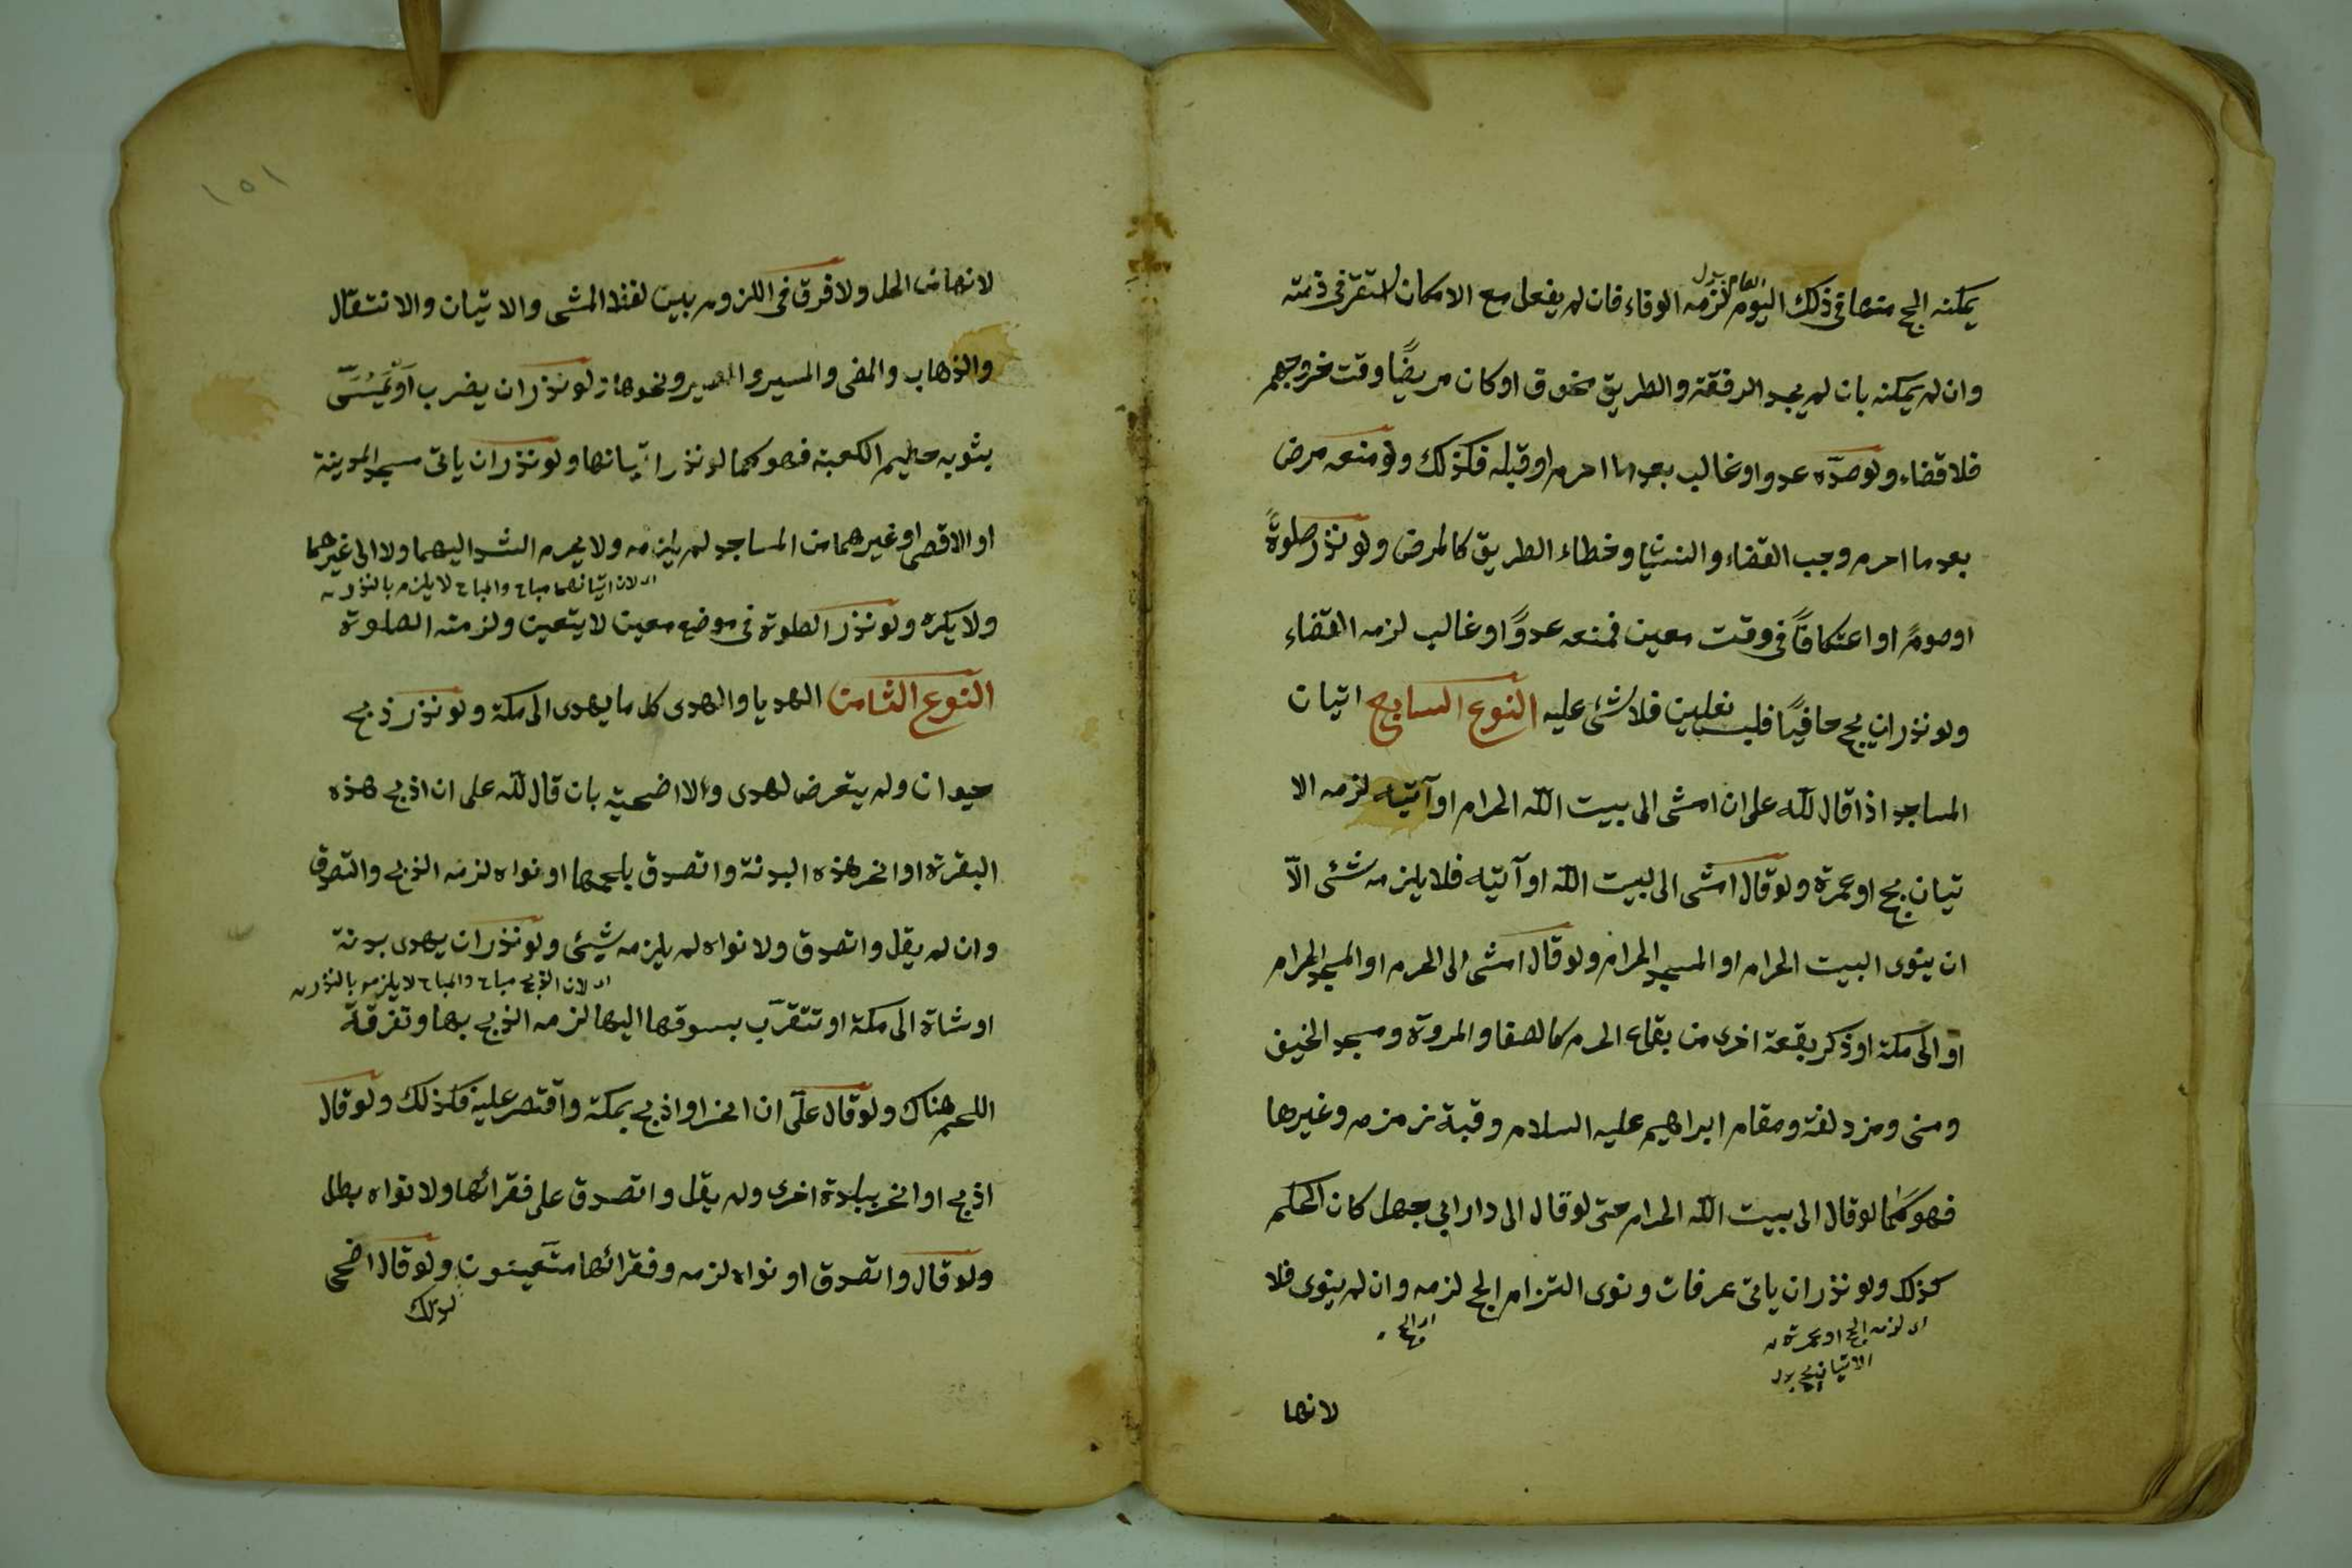 يمكنه الحج منها فى ذلك اليوم لزمه الوفاء فان لم يفعل مع الامكان استقر فى ذمته
العام بدل
وان لم يمكنه بان لم يجد الرفقة والطريق مخوف او كان مريضًا وقت خروجهم
فلا قضاء ولو صدّه عدو او غالب بعد ما احرم او قبله فكذلك ولو منعه مرض
بعد ما احرم وجب القضاء والنسيا وخطاء الطريق كالمرض ولو نذر صلوةً
او صومً او اعتكافًا فى وقت معين فمنعه عدوً او غالب لزمه القضاء
ولو نذر ان يحج حافيًا فلبس نعلين فلا شئ عليه النوع السابع اتيان
المساجد اذا قال لله على ان امشى الى بيت الله الحرام او آتيه لزمه الا
تيان بحج او عمرة ولو قال امشى الى بيت الله او آتيه فلا يلزمه شئ الّا
ان ينوى البيت الحرام او المسجد الحرام ولو قال امشى الى الحرم او المسجد الحرام
او الى مكة او ذكر بقعة اخرى من بقاع الحرم كالصفا والمروة ومسجد الخيف
ومنى ومزدلفة ومقام ابراهيم عليه السلام وقبة زمزم وغيرها
فهو كما لو قال الى بيت الله الحرام حتى لو قال الى دار ابي جهل كان الحكم
كذلك ولو نذر ان ياتى عرفات ونوى التزام الحج لزمه وان لم ينوى فلا
اى لزمه الحج او عمرة
اى الحج
الاتيان بحج بدل
لانها
١٥١
لانها من الحل ولا فرق فى اللزوم بين لفظ المشى والاتيان والانتقال
والذهاب والمضى والمسير والمصير ونحوها ولو نذر ان يضرب او يمسّ
بثوبه حطيم الكعبة فهو كما لو نذر اتيانها ولو نذر ان ياتى مسجد المدينة
او الاقصى او غيرهما من المساجد لم يلزمه ولا يحرم الشد اليهما ولا الى غيرهما
اى لان اتيانهما مباح والمباح لا يلزم بالنذر
ولا يكره ولو نذر الصلوة فى موضع معين لا يتعين ولزمته الصلوة
النوع الثامن الهديا والهدى كل ما يهدى الى مكة ولو نذر ذبح
حيوان ولم يتعرض لهدى والا اضحية بان قال لله على ان اذبح هذه
البقرة او انحر هذه البدنة واتصدق بلحمها او نواه لزمه الذبح والتصدق
وان لم يقل واتصدق ولا نواه لم يلزمه شيئ ولو نذر ان يهدى بدنة
اى لان الذبح مباح والمباح لا يلزم بالنذر
او شاة الى مكة او تتقرّب بسوقها اليها لزمه الذبح بها وتفرقة
اللحم هناك ولو قال علىّ ان انحر او اذبح بمكة واقتصر عليه فكذلك ولو قال
اذبح او انحر ببلدة اخرى ولم يقل واتصدق على فقرائها ولا نواه بطل
ولو قال واتصدق او نواه لزمه وفقرائها متعينون ولو قال اضحى
لذلك